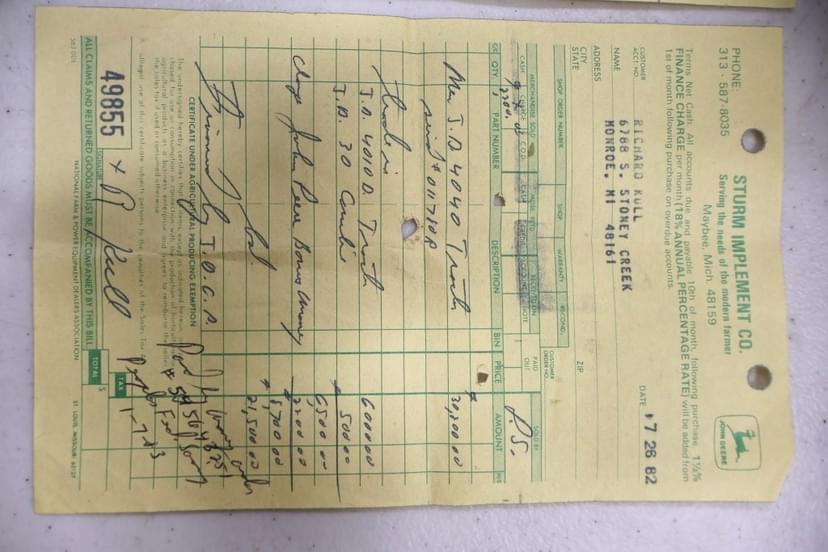 STURM IMPLEMENT CO.
Serving the needs of the modern farmer
Maybee, Mich. 48159
PHONE:
313 - 587-8035
JOHN DEERE
Terms Net Cash. All accounts due and payable 10th of month, following purchase. 1½%
FINANCE CHARGE per month (18% ANNUAL PERCENTAGE RATE) will be added from
1st of month following purchase on overdue accounts.
CUSTOMER
ACCT. NO.
DATE 7 26 82
NAME
RICHARD KULL
6788 S. STONEY CREEK
MONROE, MI 48161
ADDRESS
CITY
STATE
ZIP
CUSTOMER
ORDER NO.
SHOP ORDER NUMBER
SHOP
WARRANTY
RECOND.
PAID
OUT
SOLD BY
MERCHANDISE SOLD
CASH
CHARGE
C.O.D.
P.S.
QTY.
PART NUMBER
DESCRIPTION
BIN
PRICE
AMOUNT
2200.
New J.D 4040 Tractor
30,200 00
serial # 011710R
trade in
J.D. 4010 D. Tractor
6000 00
J.D. 30 Combine
500 00
6500 00
John Deere Bonus Money
2200 00
8700 00
bal
21,500 00
Financed by J.D.C.P.
CERTIFICATE UNDER AGRICULTURAL PRODUCING EXEMPTION
Paid by money order
1-7-83
TAX
TOTAL
$
49855
SIGNATURE
x R Kull
ALL CLAIMS AND RETURNED GOODS MUST BE ACCOMPANIED BY THIS BILL
NATIONAL FARM & POWER EQUIPMENT DEALERS ASSOCIATION
ST. LOUIS, MISSOURI